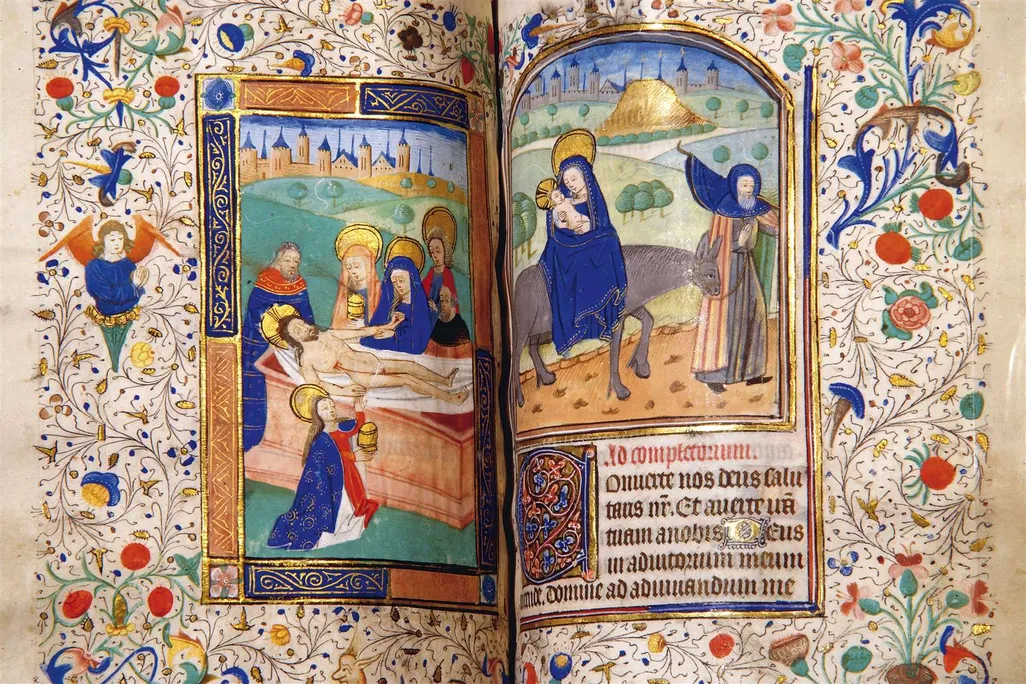 Ad completorium.
COnuerte nos deus salu
taris nr̄. Et auerte irā
tuam a nobis DEus
in adiutorium meum
intende. domine ad adiuuandum me